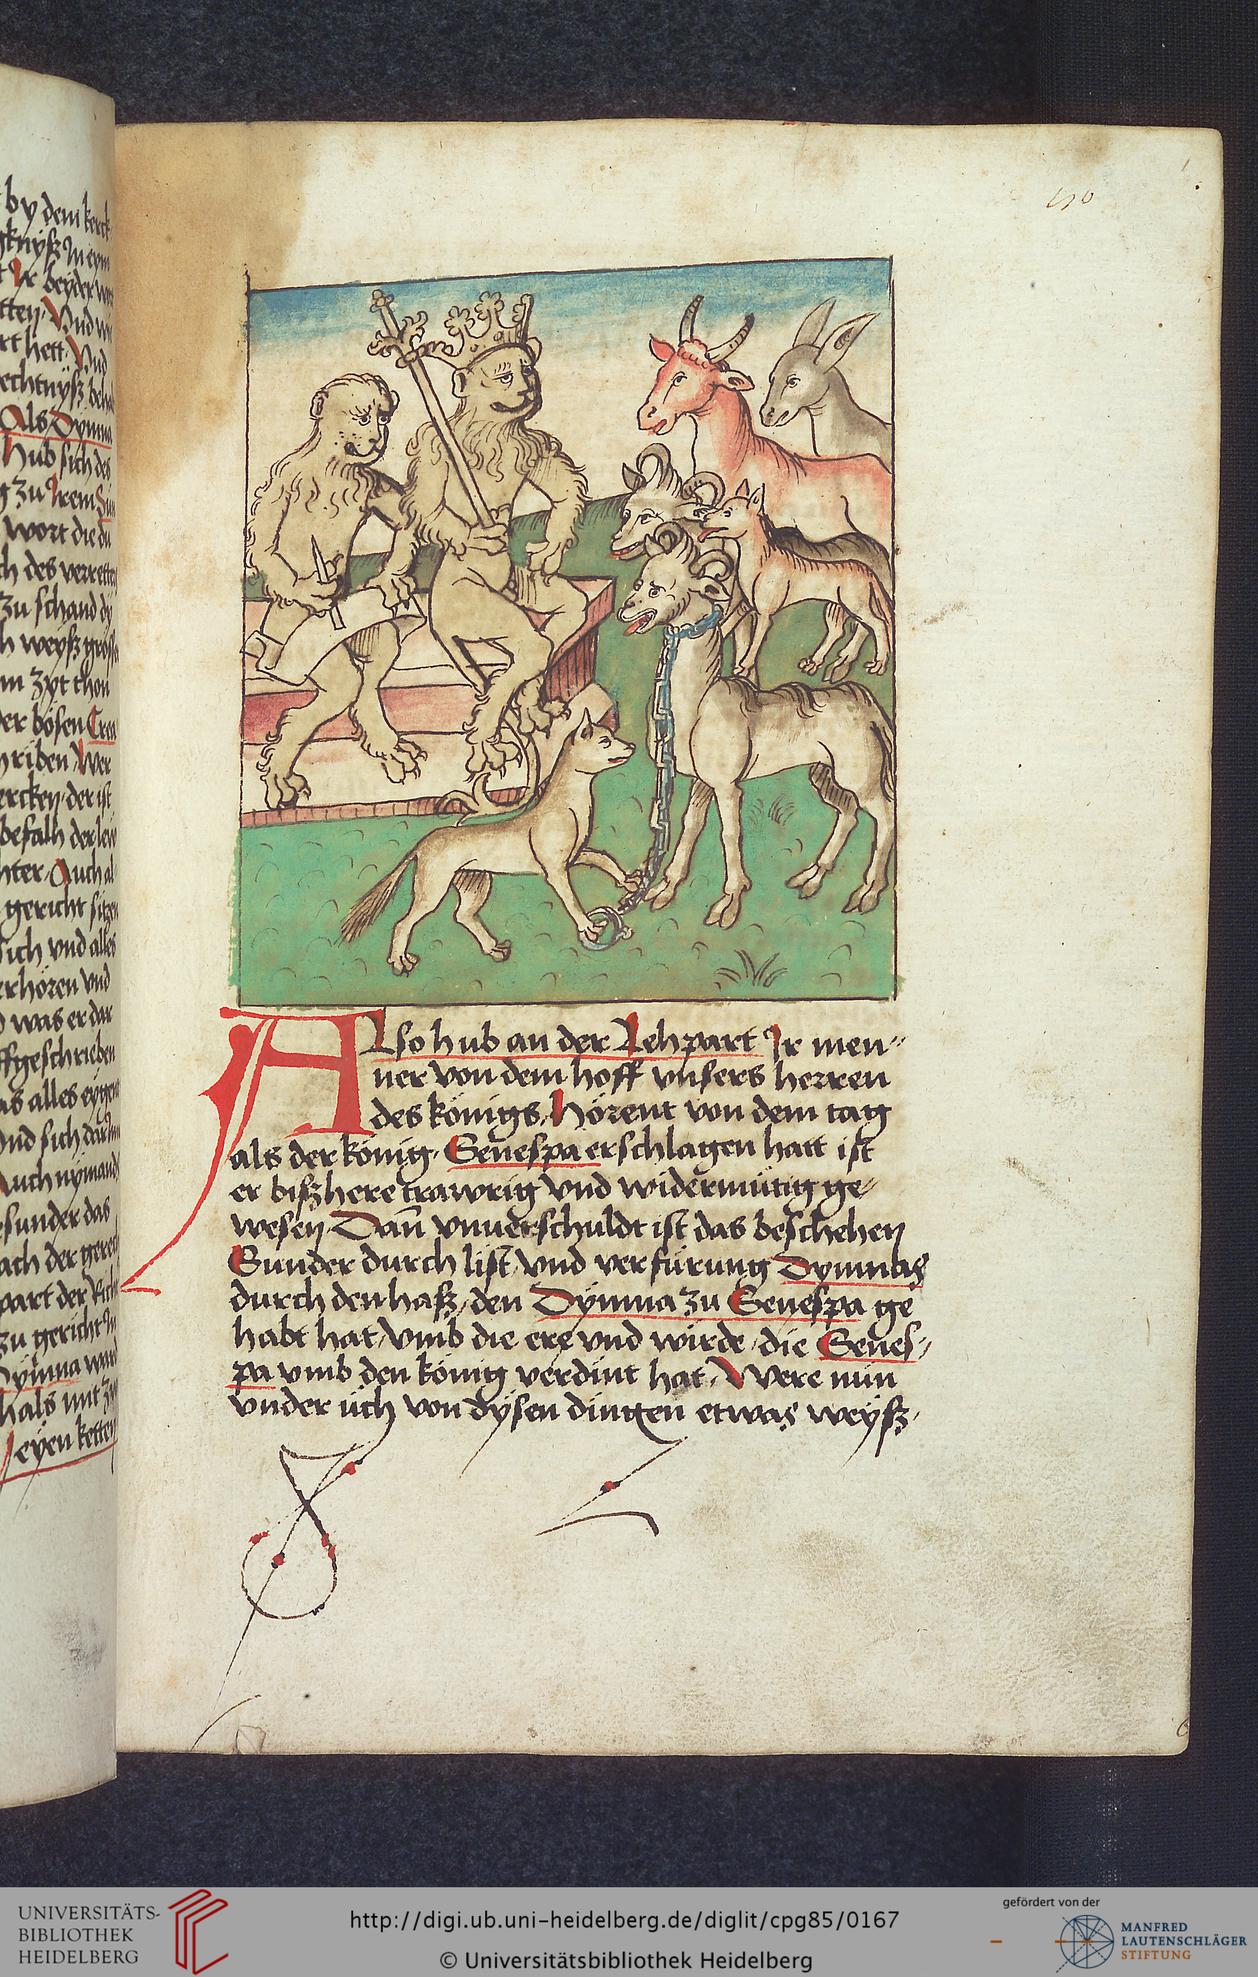 by dem kerck
Jr beyder wor
tten. Vnd wie
rt hett. Vnd
Als Dymna
hub sich des
g zu Jrem
wort die du
ch des verrette
zu schand
h weyß gross
m zyt thon
er bösen
riben Wer
ercken der ist
befalh der lew
hter. Auch al
gericht sitzen
sich vnd alles
erhören vnd
was er dar
ffgeschrieben
as alles eygen
vnd sich
Auch nymand
sunder das
ach der gerec
part der Rich
zu gericht
Dymna
hals mit
eyen ketten
Also hub an der Lehpart Jr men-
ner von dem hoff vnsers herren
des königs, hörent von dem tag
als der könig. Senespa erschlagen hatt ist
er bißhere trawrig vnd widermütig ge-
wesen Dan vnuerschuldt ist das beschehen
Sunder durch list, vnd verfürung Dymnas
durch den haß, den Dymna zu Senespa ge
habt hat, vmb die ere vnd wirde, die Senes-
pa vmb den könig verdint hat. Were nun
vnder üch von dysen dingen etwas weyß,
UNIVERSITÄTS-
BIBLIOTHEK
HEIDELBERG
http://digi.ub.uni-heidelberg.de/diglit/cpg85/0167
© Universitätsbibliothek Heidelberg
gefördert von der
MANFRED
LAUTENSCHLÄGER
STIFTUNG